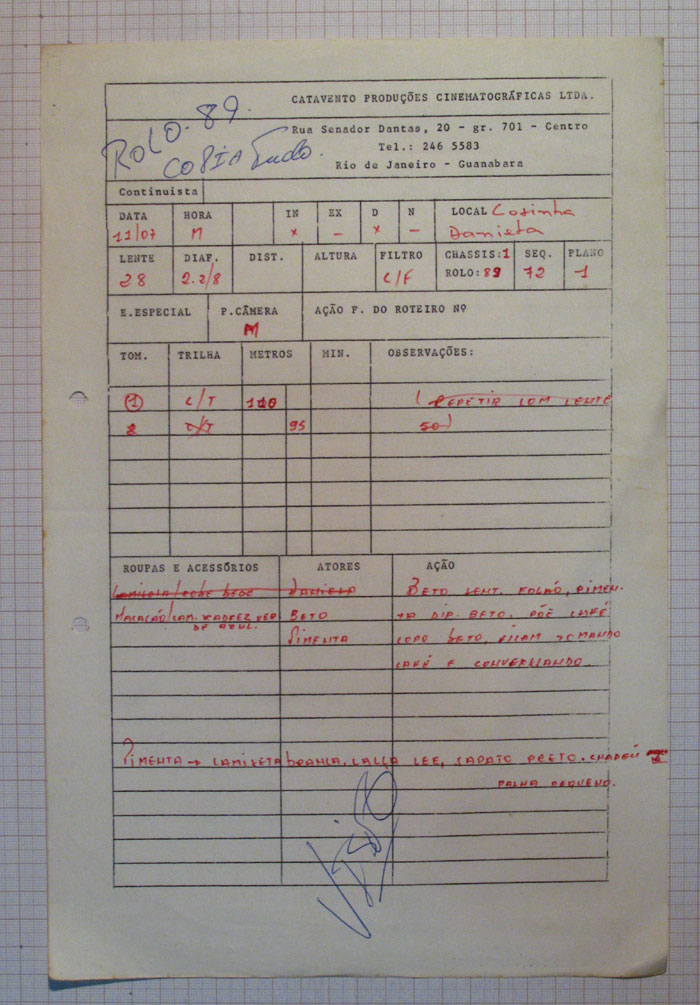 CATAVENTO PRODUÇÕES CINEMATOGRÁFICAS LTDA.
ROLO. 89.
COPIA Tudo.
Rua Senador Dantas, 20 - gr. 701 - Centro
Tel.: 246 5583
Rio de Janeiro - Guanabara
Continuista
DATA HORA IN EX D N LOCAL Cozinha
11/07 M x - x - Daniela
LENTE DIAF. DIST. ALTURA FILTRO CHASSIS:1 SEQ. PLANO
28 2.2/8 C/F ROLO:89 72 1
E.ESPECIAL P.CÂMERA AÇÃO F. DO ROTEIRO Nº
M
TOM. TRILHA METROS MIN. OBSERVAÇÕES:
1 C/T 110 (REPETIR COM LENTE
2 C/T 95 50)
ROUPAS E ACESSÓRIOS ATORES AÇÃO
DANIELA BETO SENT. FOGÃO, PIMEN-
MACACÃO/CAM. XADREZ BETO TA DIR. BETO. PÕE CAFÉ
DE AZUL. PIMENTA COPO BETO, FICAM TOMANDO
CAFÉ E CONVERSANDO
PIMENTA → CAMISETA BRANCA, CALÇA LEE, SAPATO PRETO. CHAPÉU
PALHA PEQUENO.
VISTO